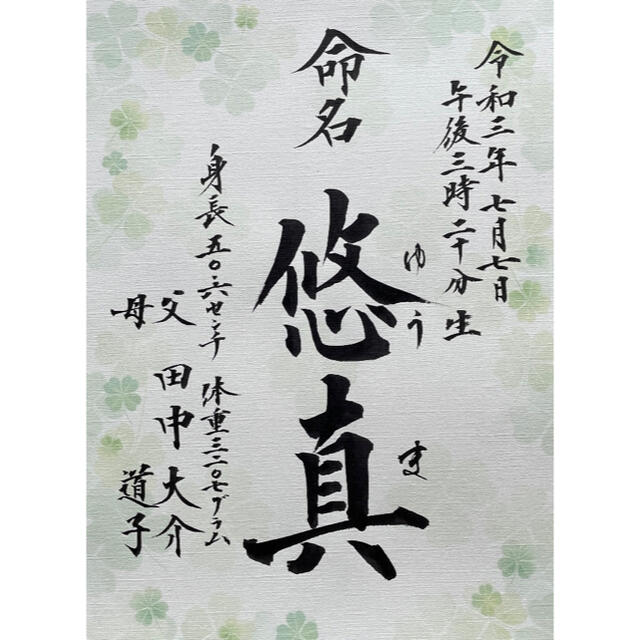 令和三年七月七日
午後三時二十分生
命名
悠真
ゆうま
身長五〇.六センチ 体重三二〇七グラム
父 田中大介
母 道子